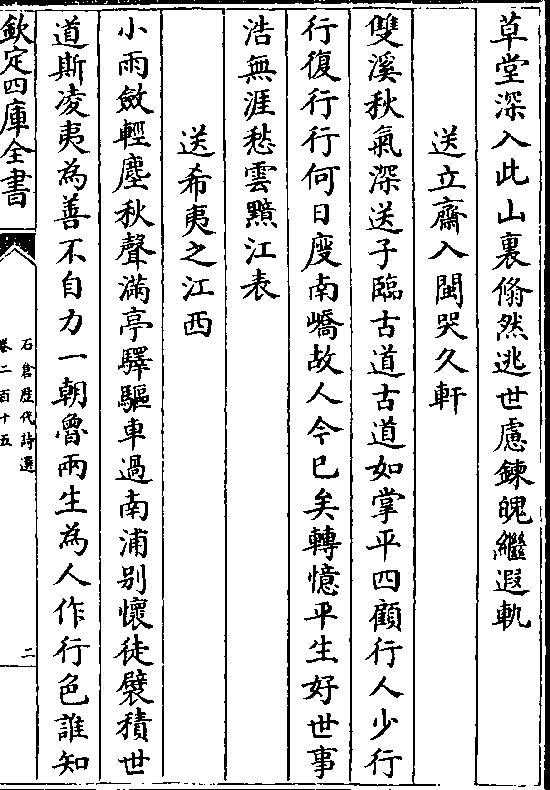 草堂深入此山裏翛然逃世慮鍊魄繼遐軌
送立齋入閩哭久軒
雙溪秋氣深送子臨古道古道如掌平四顧行人少行
行復行行何日度南嶠故人今已矣轉憶平生好世事
浩無涯愁雲黯江表
送希夷之江西
小雨斂輕塵秋聲滿亭驛驅車過南浦别懷徒襞積世
道斯凌夷為善不自力一朝魯兩生為人作行色誰知
欽定四庫全書
石倉歷代詩選
卷二百十五
二